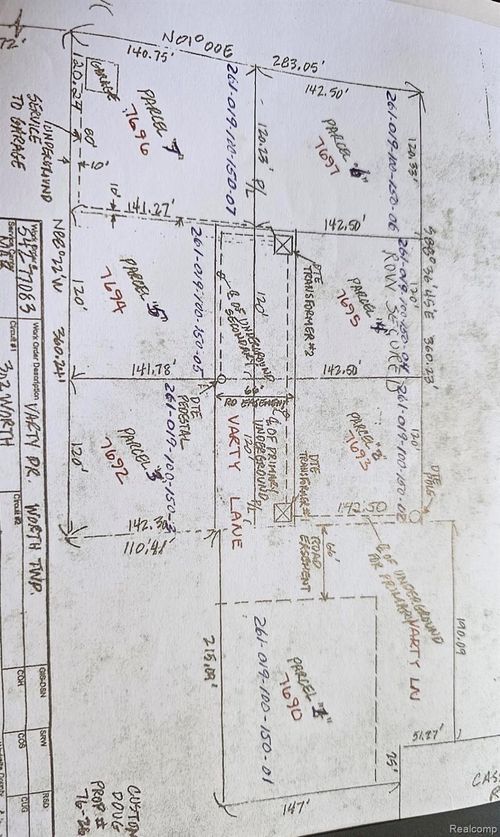 N 01° 00' E
140.75'
283.05'
142.50'
72'
120.24
GARAGE
PARCEL "7"
7696
261-019-100-150-07
120.23' P/L
PARCEL "6"
7697
261-019-100-150-06
120.33'
UNDERGROUND
SERVICE
TO GARAGE
60'
10'
141.27'
142.50'
S88° 36' 42" E 360.23'
N88° 12' W 360.24'
120'
PARCEL "5"
7694
261-019-100-150-05
℄ OF UNDERGROUND
SECONDARY
120'
DTE
TRANSFORMER #2
PARCEL "4"
7695
261-019-100-150-04
ROW SECURED
120'
141.78'
142.50'
66'
RD EASEMENT
DTE
PEDESTAL
PARCEL "3"
7692
261-019-100-150-3
120'
VARTY LANE
℄ OF PRIMARY
UNDERGROUND
120'
P/L
DTE
TRANSFORMER #1
PARCEL "2"
7693
261-019-100-150-02
120'
DTE
142.50
142.30'
110.48'
66'
ROAD
EASEMENT
℄ OF UNDERGROUND
PRIMARY
VARTY LN
190.09
215.09'
PARCEL "1"
7690
261-019-100-150-01
51.27'
25'
147'
CAS
R
Work Order #
54277083
Service Center
Work Order Description
VARTY DR. WORTH TWP
Circuit #1
312 WORTH
Circuit #2
COH
COS
SRW
R&D
CUG
CUSTOM
DOUG
PROP #